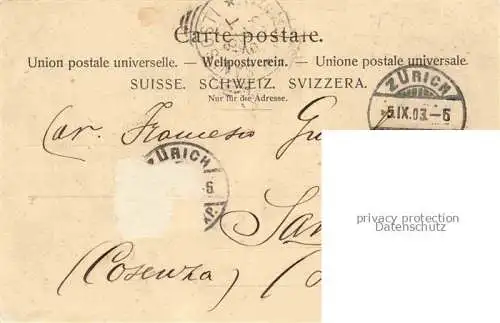 Carte postale.
Union postale universelle. — Weltpostverein. — Unione postale universale.
SUISSE. SCHWEIZ. SVIZZERA.
Nur für die Adresse.
ZÜRICH
-5.IX.03.-6
Car. Francesco
ZÜRICH
6
privacy protection
Datenschutz
(Cosenza)